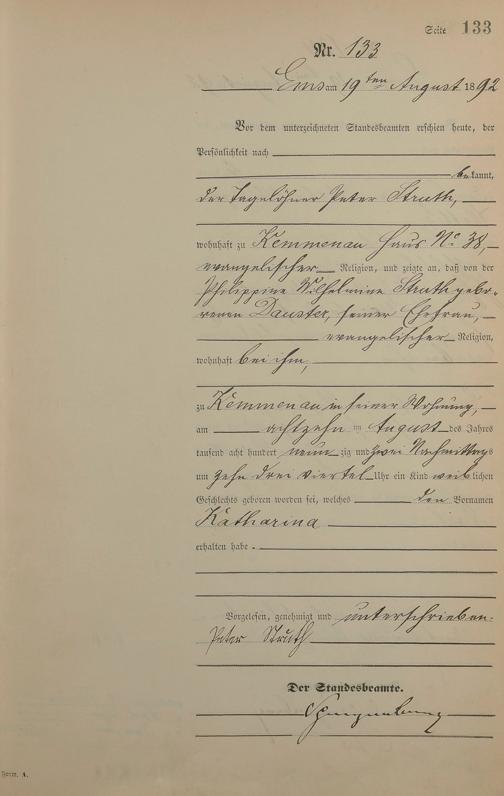 Seite 133
Nr. 133
Ems am 19ten August 1892
Vor dem unterzeichneten Standesbeamten erschien heute, der
Persönlichkeit nach
bekannt,
der Tagelöhner Peter Struth,
wohnhaft zu Kemmenau Haus No 38,
evangelischer Religion, und zeigte an, daß von der
Philippine Wilhelmine Struth gebor-
renen Dauster, seiner Ehefrau,
evangelischer Religion,
wohnhaft bei ihm,
zu Kemmenau in seiner Wohnung,
am achtzehn ten August des Jahres
tausend acht hundert neun zig und zwei Nachmittags
um zehn drei viertel Uhr ein Kind weiblichen
Geschlechts geboren worden sei, welches den Vornamen
Katharina
erhalten habe.
Vorgelesen, genehmigt und unterschrieben.
Peter Struth
Der Standesbeamte.
Form. A.